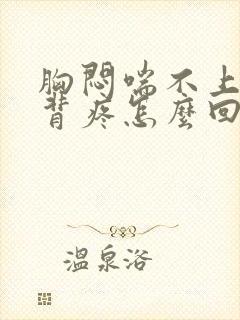 胸悶喘不上
背疼怎麼回
溫泉浴